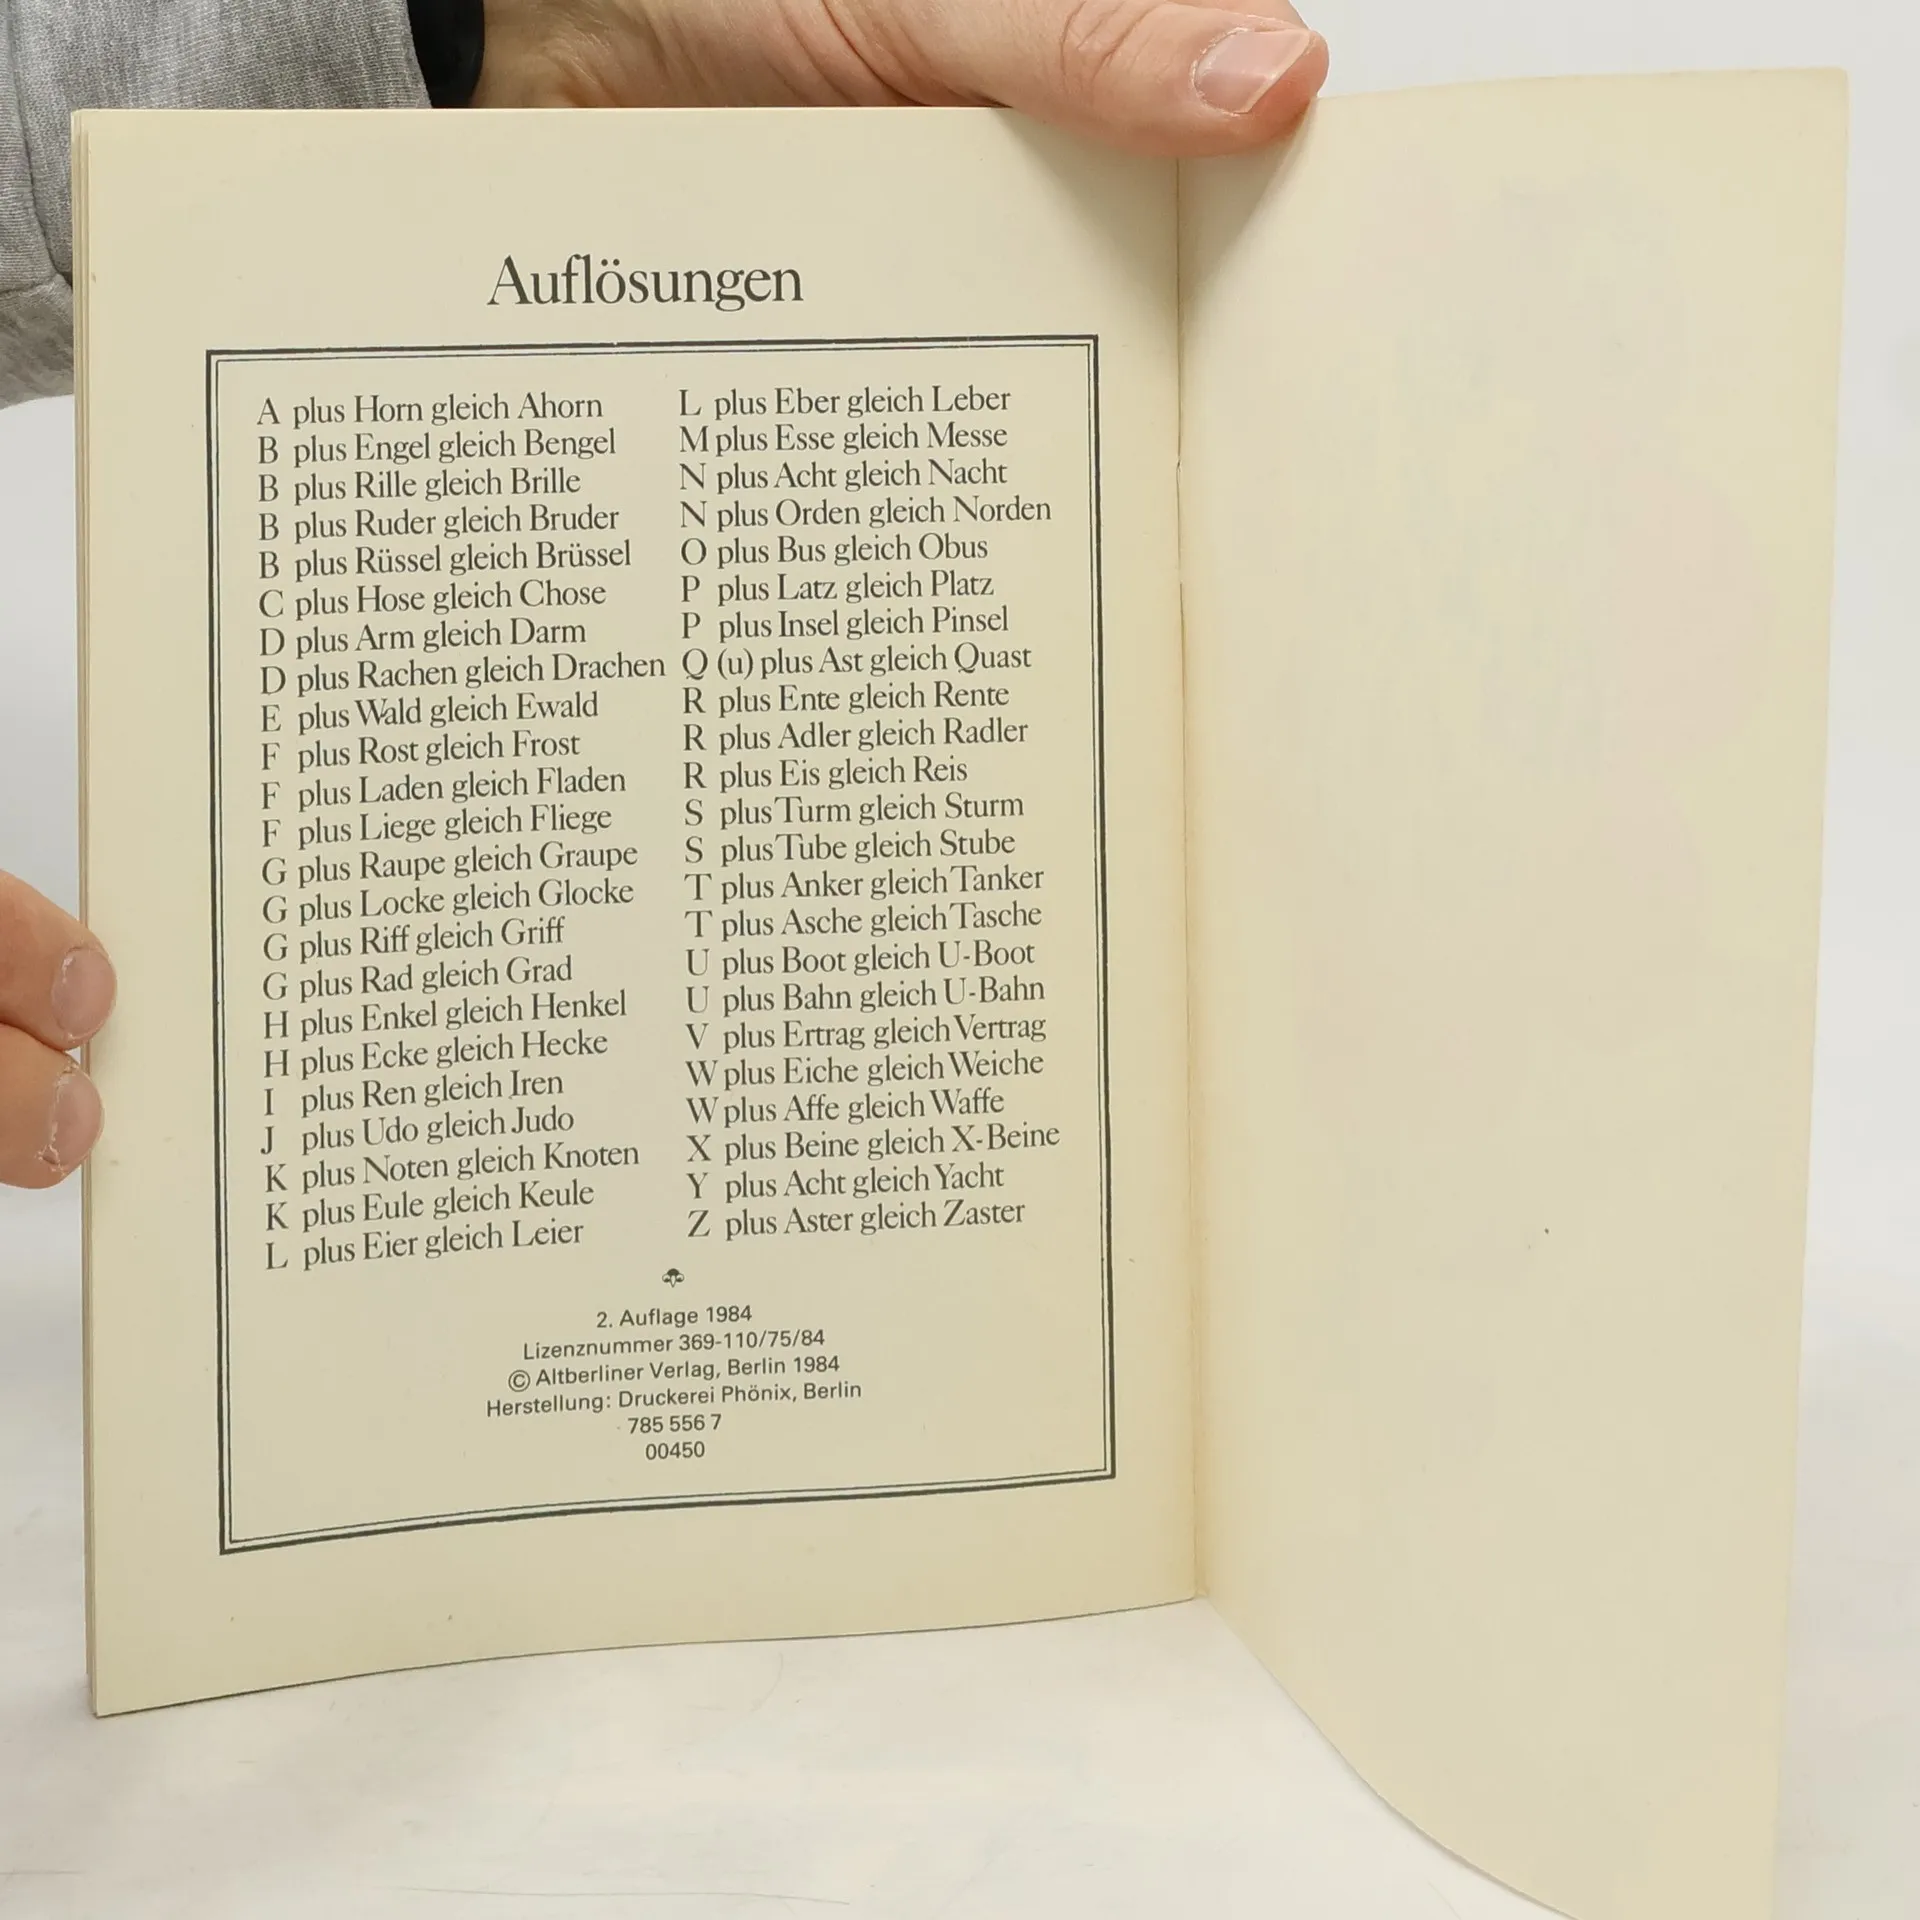 Auflösungen
A plus Horn gleich Ahorn
B plus Engel gleich Bengel
B plus Rille gleich Brille
B plus Ruder gleich Bruder
B plus Rüssel gleich Brüssel
C plus Hose gleich Chose
D plus Arm gleich Darm
D plus Rachen gleich Drachen
E plus Wald gleich Ewald
F plus Rost gleich Frost
F plus Laden gleich Fladen
F plus Liege gleich Fliege
G plus Raupe gleich Graupe
G plus Locke gleich Glocke
G plus Riff gleich Griff
G plus Rad gleich Grad
H plus Enkel gleich Henkel
H plus Ecke gleich Hecke
I plus Ren gleich Iren
J plus Udo gleich Judo
K plus Noten gleich Knoten
K plus Eule gleich Keule
L plus Eier gleich Leier
L plus Eber gleich Leber
M plus Esse gleich Messe
N plus Acht gleich Nacht
N plus Orden gleich Norden
O plus Bus gleich Obus
P plus Latz gleich Platz
P plus Insel gleich Pinsel
Q (u) plus Ast gleich Quast
R plus Ente gleich Rente
R plus Adler gleich Radler
R plus Eis gleich Reis
S plus Turm gleich Sturm
S plus Tube gleich Stube
T plus Anker gleich Tanker
T plus Asche gleich Tasche
U plus Boot gleich U-Boot
U plus Bahn gleich U-Bahn
V plus Ertrag gleich Vertrag
W plus Eiche gleich Weiche
W plus Affe gleich Waffe
X plus Beine gleich X-Beine
Y plus Acht gleich Yacht
Z plus Aster gleich Zaster
2. Auflage 1984
Lizenznummer 369-110/75/84
© Altberliner Verlag, Berlin 1984
Herstellung: Druckerei Phönix, Berlin
785 556 7
00450